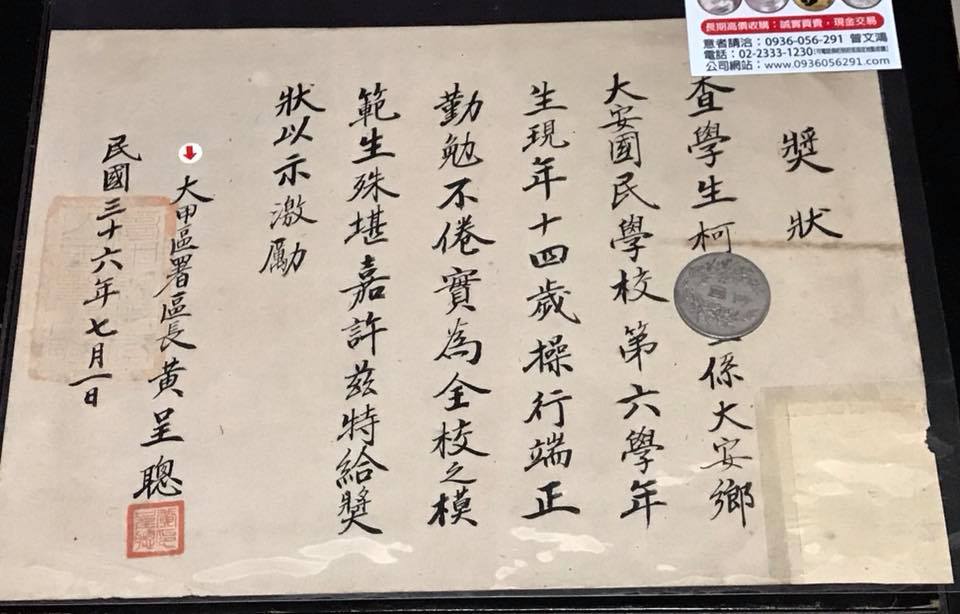 長期高價收購：誠實買賣，現金交易
意者請洽：0936-056-291 曾文鴻
電話：02-2333-1230
公司網站：www.0936056291.com
獎狀
查學生柯 係大安鄉
大安國民學校第六學年
生現年十四歲操行端正
勤勉不倦實為全校之模
範生殊堪嘉許茲特給獎
狀以示激勵
大甲區署區長黃呈聰
民國三十六年七月一日